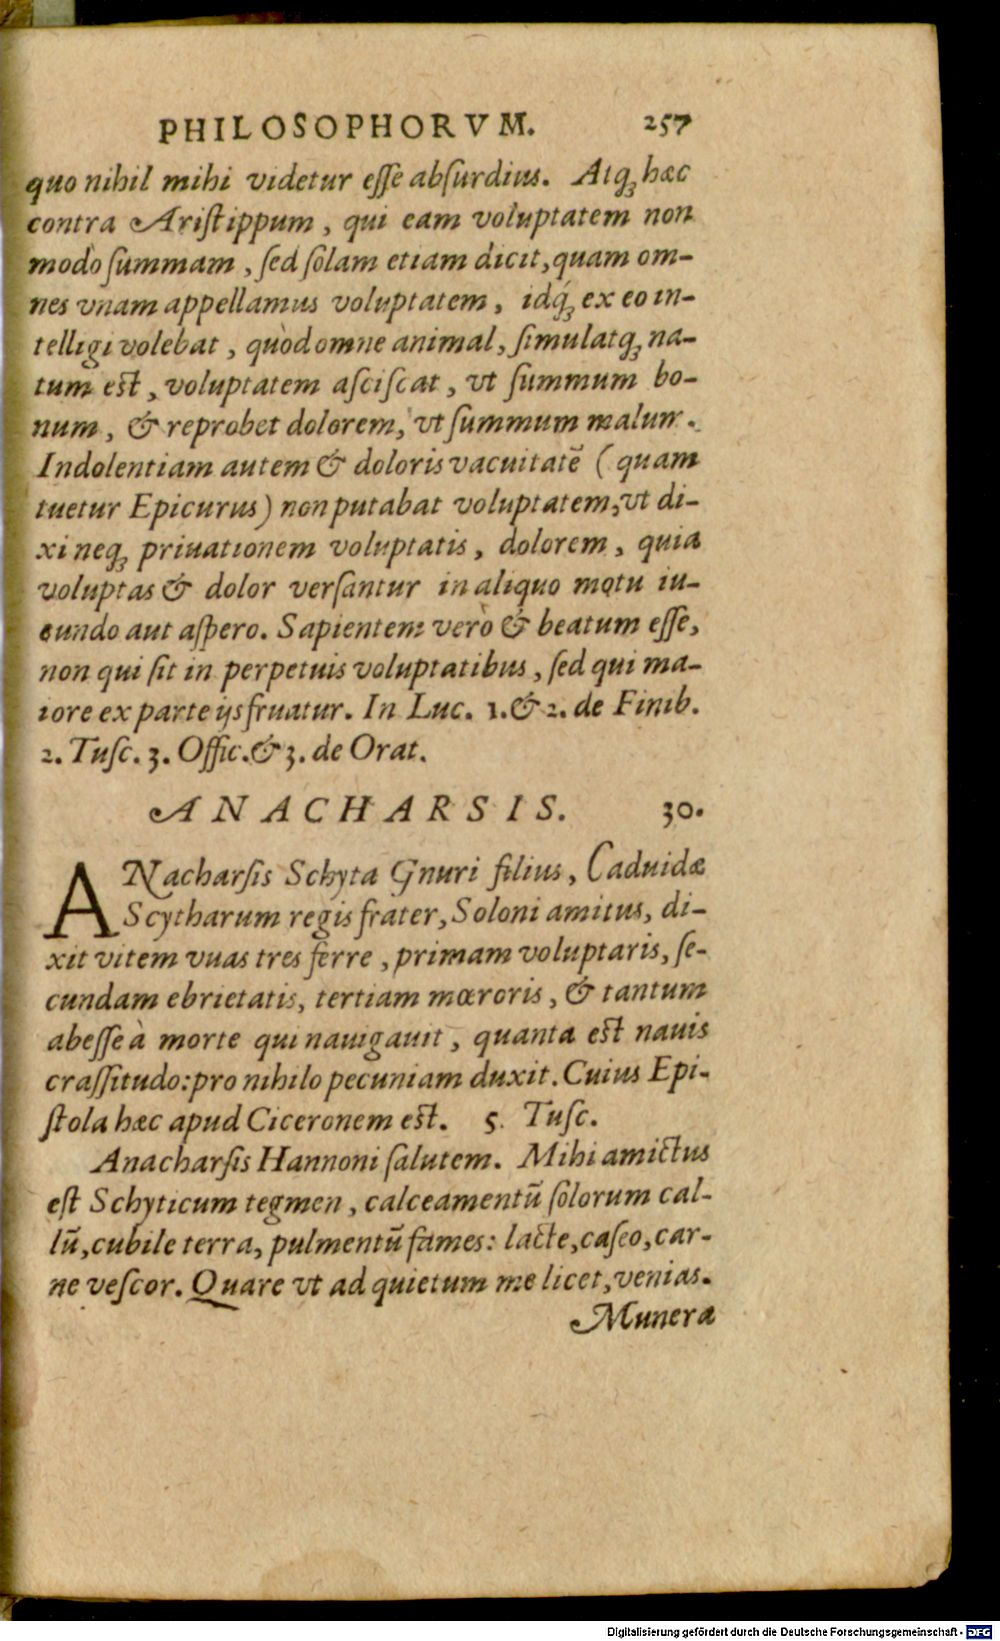 PHILOSOPHORVM. 257
quo nihil mihi videtur eſſe abſurdius. Atq́; hæc
contra Ariſtippum, qui eam voluptatem non
modò ſummam, ſed ſolam etiam dicit, quam om-
nes vnam appellamus voluptatem, idq́; ex eo in-
telligi volebat, quòd omne animal, ſimulatq; na-
tum eſt, voluptatem aſciſcat, vt ſummum bo-
num, & reprobet dolorem, vt ſummum malum.
Indolentiam autem & doloris vacuitatẽ (quam
tuetur Epicurus) non putabat voluptatem, vt di-
xi neq; priuationem voluptatis, dolorem, quia
voluptas & dolor verſantur in aliquo motu iu-
cundo aut aſpero. Sapientem verò & beatum eſſe,
non qui ſit in perpetuis voluptatibus, ſed qui ma-
iore ex parte ijs fruatur. In Luc. 1. & 2. de Finib.
2. Tuſc. 3. Offic. & 3. de Orat.
ANACHARSIS. 30.
ANacharſis Schyta Gnuri filius, Caduidæ
Scytharum regis frater, Soloni amitus, di-
xit vitem vuas tres ferre, primam voluptaris, ſe-
cundam ebrietatis, tertiam mœroris, & tantum
abeſſe à morte qui nauigauit, quanta eſt nauis
craſſitudo: pro nihilo pecuniam duxit. Cuius Epi-
ſtola hæc apud Ciceronem eſt. 5. Tuſc.
Anacharſis Hannoni ſalutem. Mihi amictus
eſt Schyticum tegmen, calceamentũ ſolorum cal-
lũ, cubile terra, pulmentũ fames: lacte, caſeo, car-
ne veſcor. Quare vt ad quietum me licet, venias.
Munera
Digitalisierung gefördert durch die Deutsche Forschungsgemeinschaft - DFG